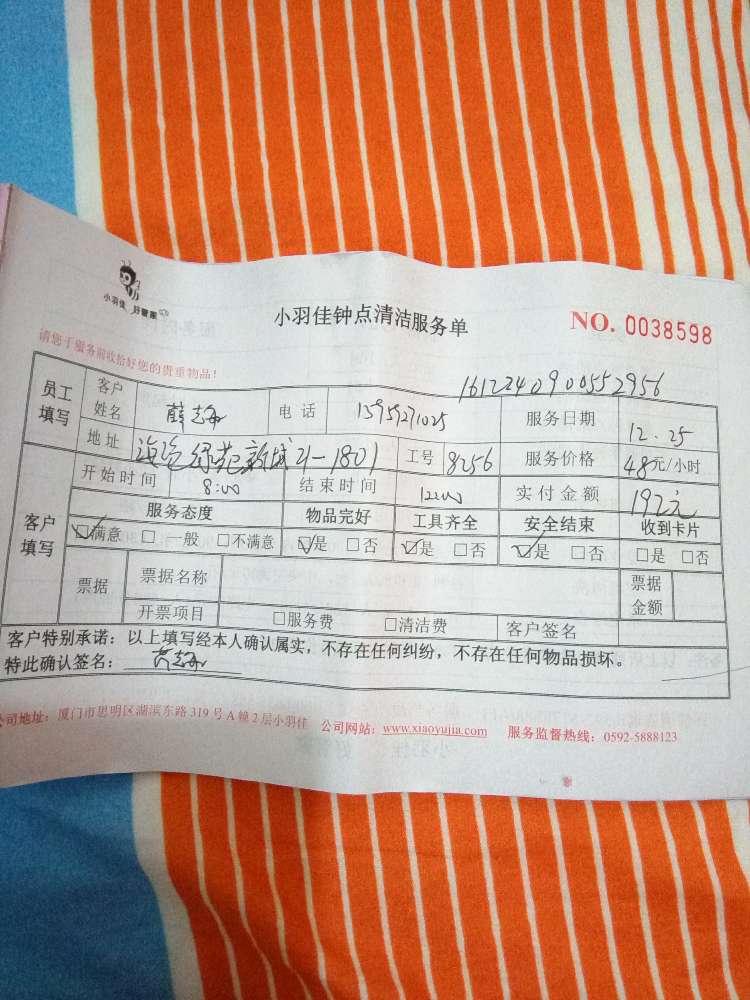 小羽佳 好管家
小羽佳钟点清洁服务单
NO. 0038598
请您于服务前收拾好您的贵重物品!
1612240900552956
员工填写 客户姓名 电话 13959271025 服务日期 12.25
地址 绿苑新城21-1801 工号 8256 服务价格 48元/小时
客户填写 开始时间 8:00 结束时间 12:00 实付金额 192元
服务态度 物品完好 工具齐全 安全结束 收到卡片
☑满意 □一般 □不满意 ☑是 □否 ☑是 □否 ☑是 □否 □是 □否
票据 票据名称 票据金额
开票项目 □服务费 □清洁费 客户签名
客户特别承诺:以上填写经本人确认属实,不存在任何纠纷,不存在任何物品损坏。
特此确认签名:
公司地址:厦门市思明区湖滨东路319号A幢2层小羽佳 公司网站:www.xiaoyujia.com 服务监督热线:0592-5888123